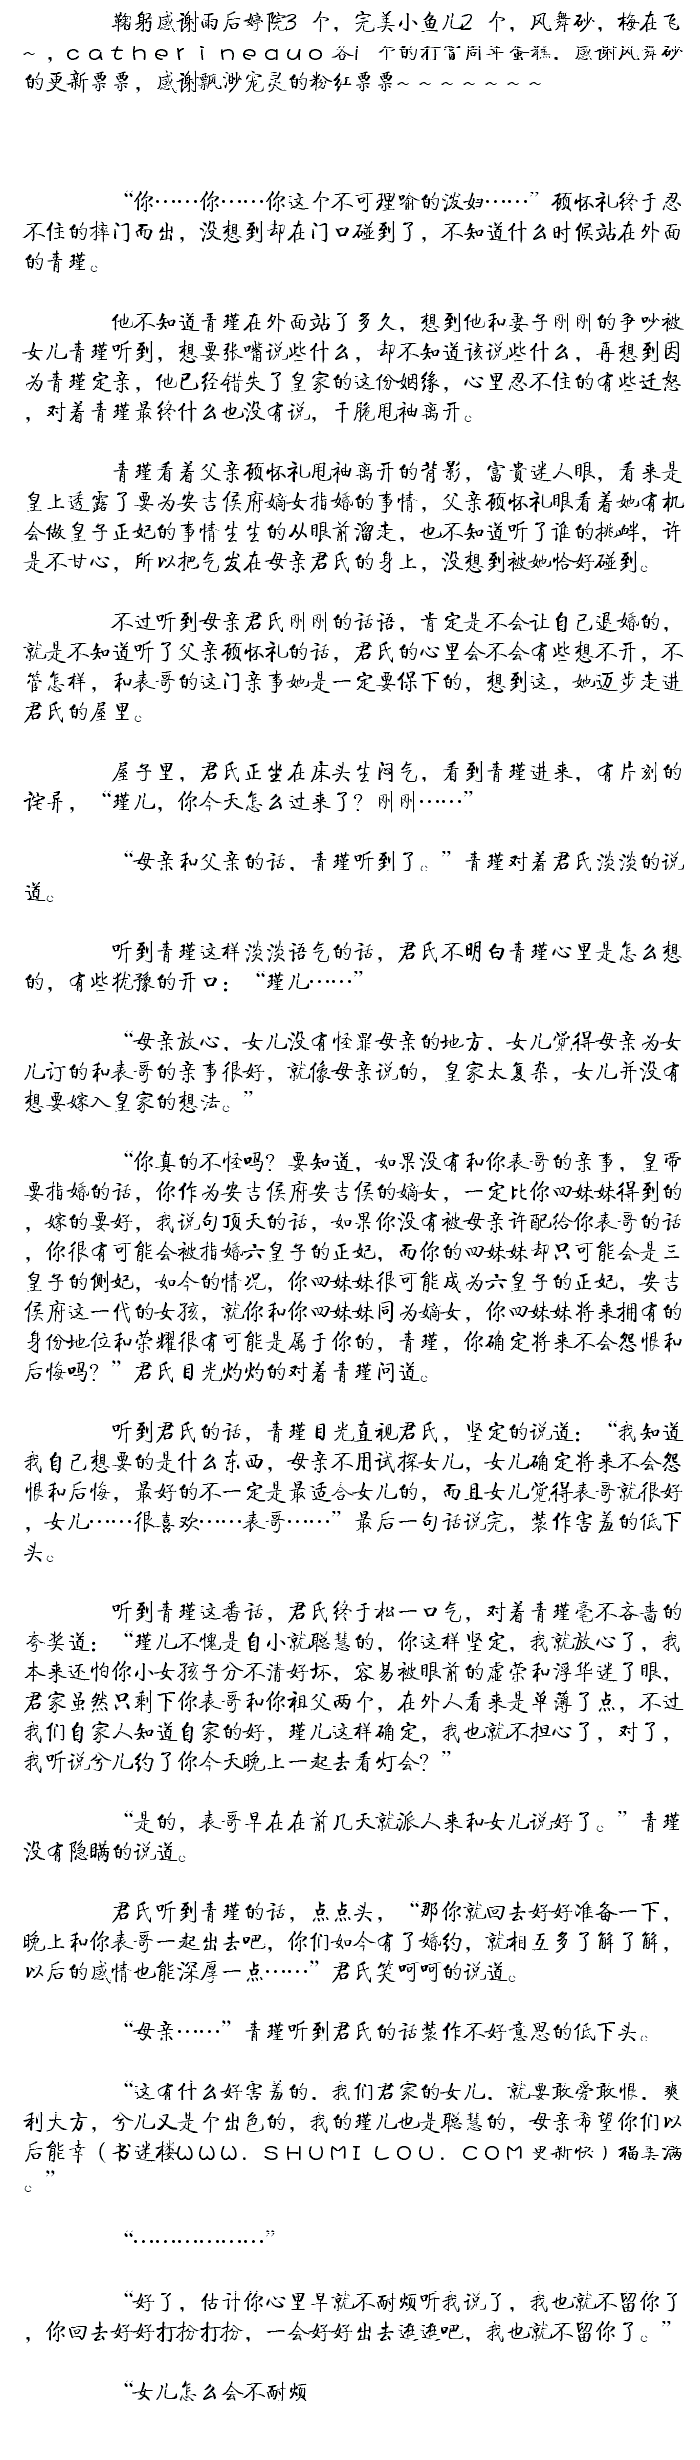 鞠躬感谢雨后婷院3 个，完美小鱼儿2 个，风舞砂，梅在飞
~ ，ｃａｔｈｅｒｉｎｅａｕｏ各1 个的打赏周年蛋糕．感谢风舞砂
的更新票票，感谢飘渺宠灵的粉红票票~ ~ ~ ~ ~ ~ ~
“你……你……你这个不可理喻的泼妇……”顾怀礼终于忍
不住的摔门而出，没想到却在门口碰到了，不知道什么时候站在外面
的青瑾。
他不知道青瑾在外面站了多久，想到他和妻子刚刚的争吵被
女儿青瑾听到，想要张嘴说些什么，却不知道该说些什么，再想到因
为青瑾定亲，他已经错失了皇家的这份姻缘，心里忍不住的有些迁怒
，对着青瑾最终什么也没有说，干脆甩袖离开。
青瑾看着父亲顾怀礼甩袖离开的背影，富贵迷人眼，看来是
皇上透露了要为安吉侯府嫡女指婚的事情，父亲顾怀礼眼看着她有机
会做皇子正妃的事情生生的从眼前溜走，也不知道听了谁的挑衅，许
是不甘心，所以把气发在母亲君氏的身上，没想到被她恰好碰到。
不过听到母亲君氏刚刚的话语，肯定是不会让自己退婚的，
就是不知道听了父亲顾怀礼的话，君氏的心里会不会有些想不开，不
管怎样，和表哥的这门亲事她是一定要保下的，想到这，她迈步走进
君氏的屋里。
屋子里，君氏正坐在床头生闷气，看到青瑾进来，有片刻的
诧异，“瑾儿，你今天怎么过来了？刚刚……”
“母亲和父亲的话，青瑾听到了。”青瑾对着君氏淡淡的说
道。
听到青瑾这样淡淡语气的话，君氏不明白青瑾心里是怎么想
的，有些犹豫的开口：“瑾儿……”
“母亲放心，女儿没有怪罪母亲的地方，女儿觉得母亲为女
儿订的和表哥的亲事很好，就像母亲说的，皇家太复杂，女儿并没有
想要嫁入皇家的想法。”
“你真的不怪吗？要知道，如果没有和你表哥的亲事，皇帝
要指婚的话，你作为安吉侯府安吉侯的嫡女，一定比你四妹妹得到的
，嫁的要好，我说句顶天的话，如果你没有被母亲许配给你表哥的话
，你很有可能会被指婚六皇子的正妃，而你的四妹妹却只可能会是三
皇子的侧妃，如今的情况，你四妹妹很可能成为六皇子的正妃，安吉
侯府这一代的女孩，就你和你四妹妹同为嫡女，你四妹妹将来拥有的
身份地位和荣耀很有可能是属于你的，青瑾，你确定将来不会怨恨和
后悔吗？”君氏目光灼灼的对着青瑾问道。
听到君氏的话，青瑾目光直视君氏，坚定的说道：“我知道
我自己想要的是什么东西，母亲不用试探女儿，女儿确定将来不会怨
恨和后悔，最好的不一定是最适合女儿的，而且女儿觉得表哥就很好
，女儿……很喜欢……表哥……”最后一句话说完，装作害羞的低下
头。
听到青瑾这番话，君氏终于松一口气，对着青瑾毫不吝啬的
夸奖道：“瑾儿不愧是自小就聪慧的，你这样坚定，我就放心了，我
本来还怕你小女孩子分不清好坏，容易被眼前的虚荣和浮华迷了眼，
君家虽然只剩下你表哥和你祖父两个，在外人看来是单薄了点，不过
我们自家人知道自家的好，瑾儿这样确定，我也就不担心了，对了，
我听说兮儿约了你今天晚上一起去看灯会？”
“是的，表哥早在在前几天就派人来和女儿说好了。”青瑾
没有隐瞒的说道。
君氏听到青瑾的话，点点头，“那你就回去好好准备一下，
晚上和你表哥一起出去吧，你们如今有了婚约，就相互多了解了解，
以后的感情也能深厚一点……”君氏笑呵呵的说道。
“母亲……”青瑾听到君氏的话装作不好意思的低下头。
“这有什么好害羞的．我们君家的女儿．就要敢爱敢恨．爽
利大方，兮儿又是个出色的，我的瑾儿也是聪慧的，母亲希望你们以
后能幸（书迷楼ＷＷＷ．ＳＨＵＭＩＬＯＵ．ＣＯＭ更新快）福美满
。”
“………………”
“好了，估计你心里早就不耐烦听我说了，我也就不留你了
，你回去好好打扮打扮，一会好好出去逛逛吧，我也就不留你了。”
“女儿怎么会不耐烦